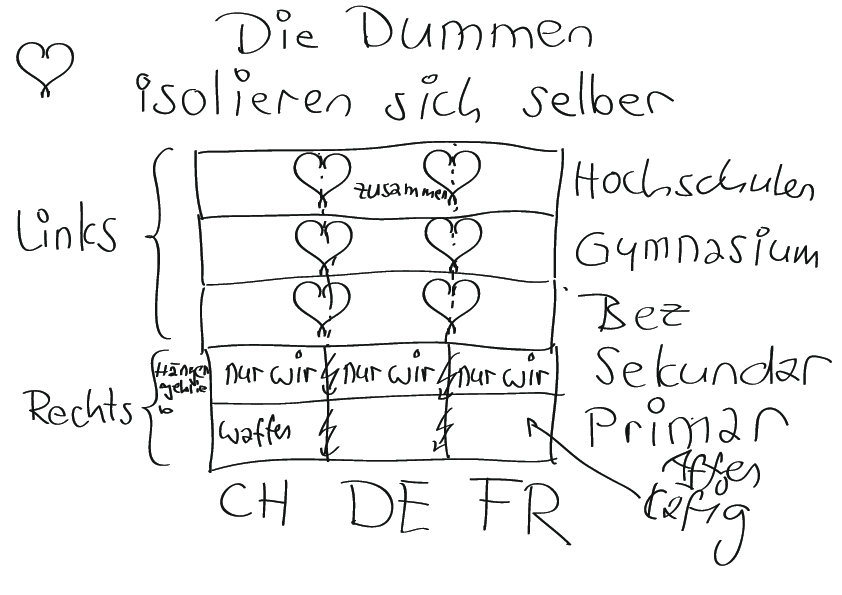 Die Dummen
isolieren sich selber
zusammen
Hochschulen
Links
Gymnasium
Bez
Hängen
geblie
b
nur wir
nur wir
nur wir
Sekundar
Rechts
Waffen
Primar
Affen
Käfig
CH DE FR